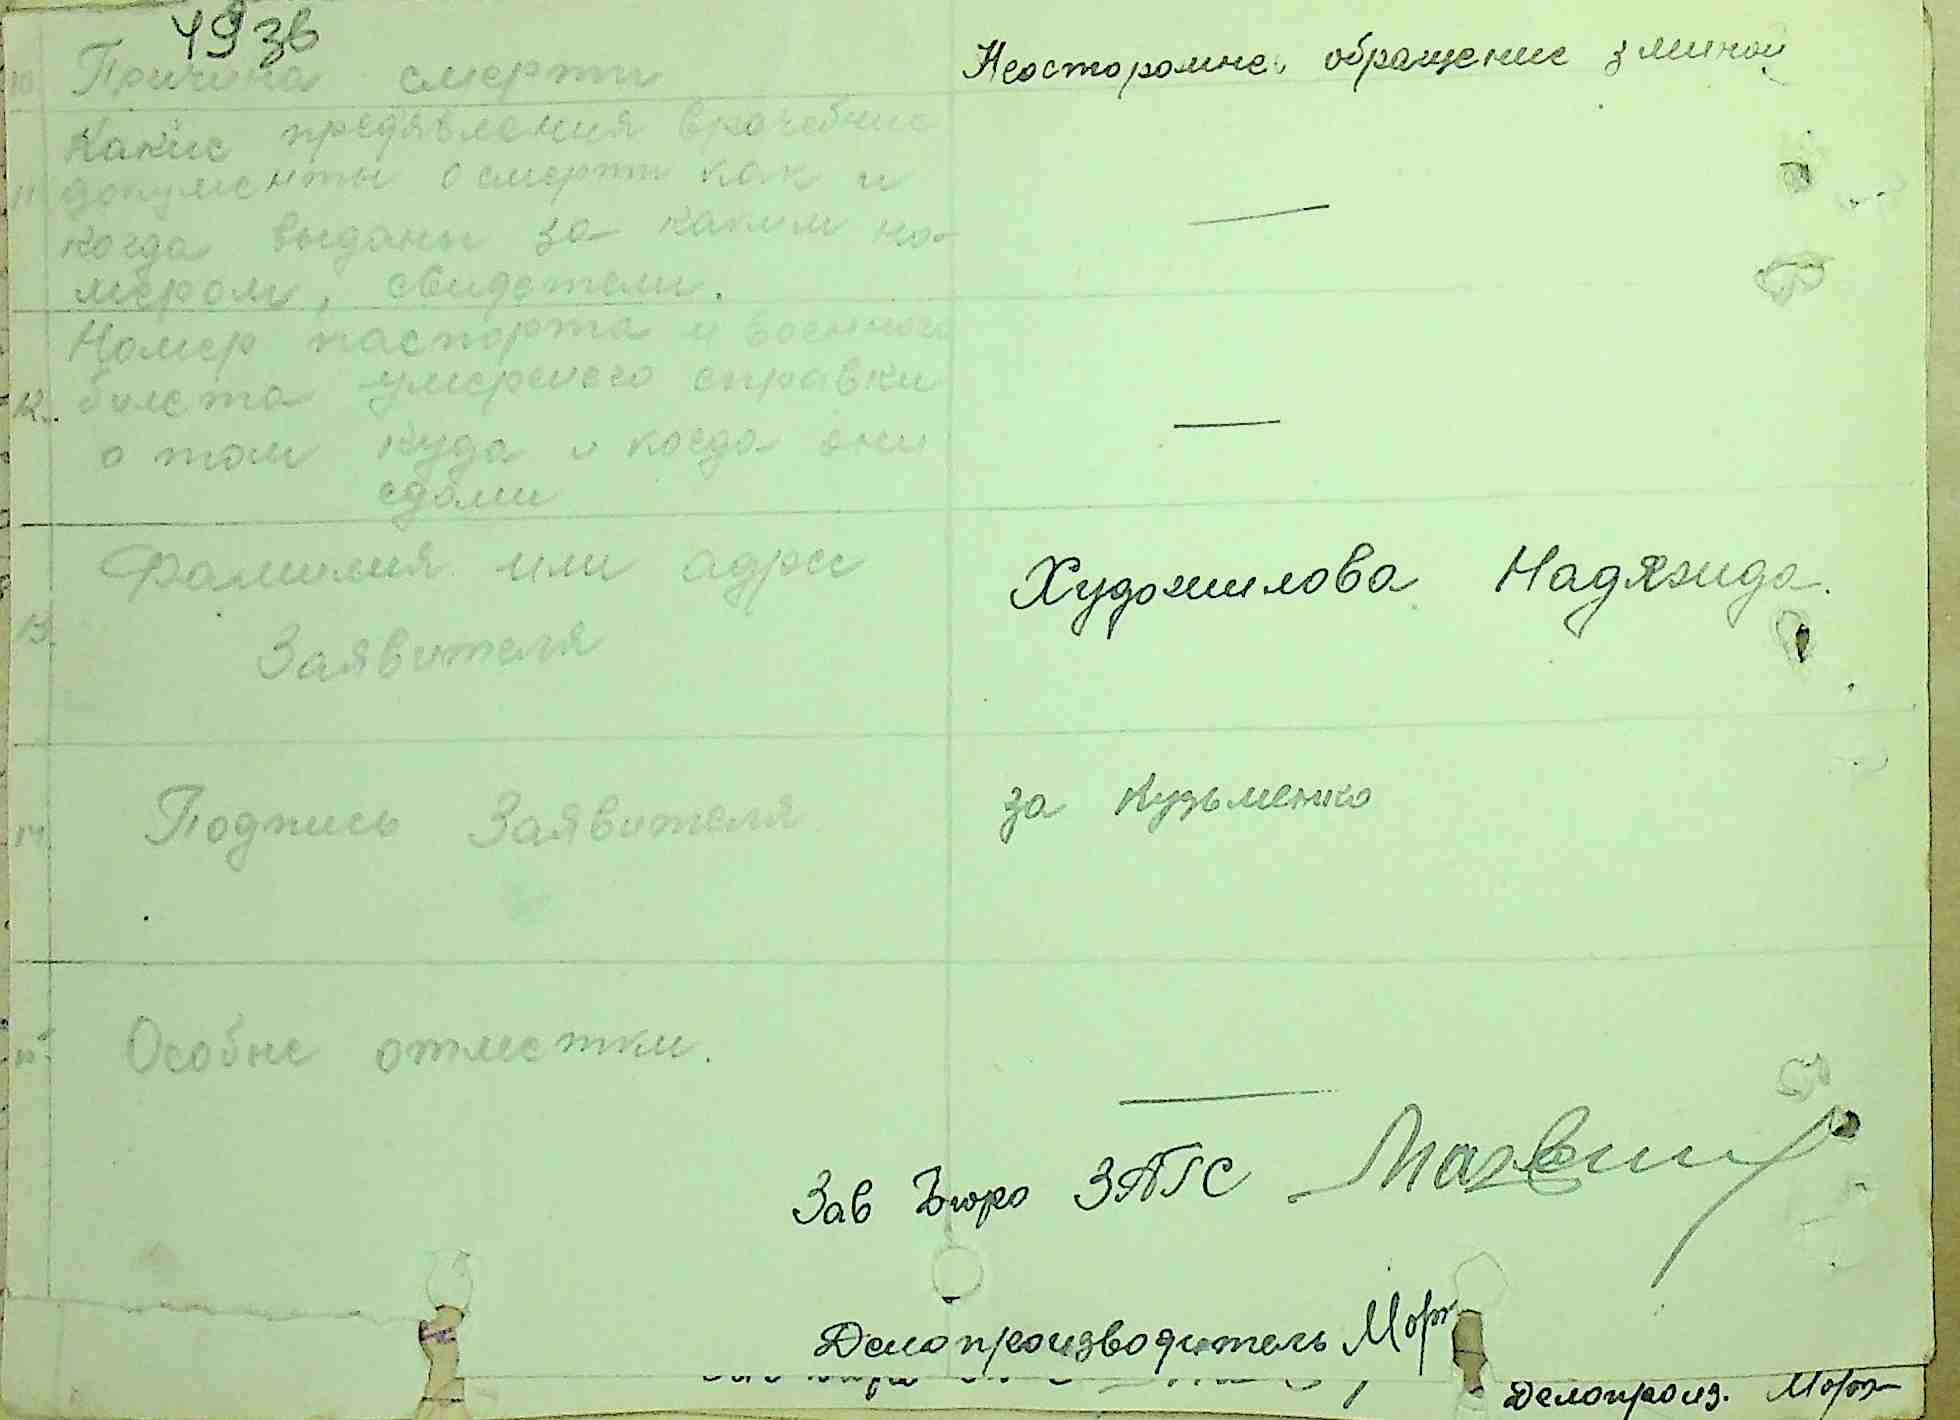 49зв
10 Причина смерти Неосторожне обращение з миной
Какие предявления врачебние
11 документы о смерти как и
когда выданы за каким но-
мером, свидетели.
Номер паспорта и военного
12. билета умершего справки
о том куда и когда они
сдани
Фамилия или адрес Художилова Надяжида.
13. Заявителя
14 Подпись Заявителя за Кузьменко
15. Особые отметки.
Зав Бюро ЗАГС
Делопроизводитель
Делопроиз.